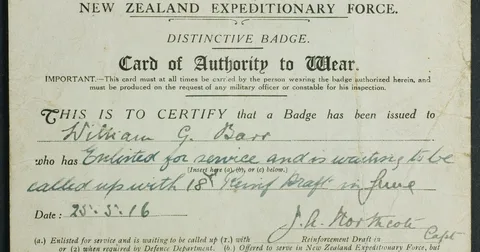 NEW ZEALAND EXPEDITIONARY FORCE.
DISTINCTIVE BADGE.
Card of Authority to Wear.
IMPORTANT.—This card must at all times be carried by the person wearing the badge authorized herein, and
must be produced on the request of any military officer or constable for his inspection.
THIS IS TO CERTIFY that a Badge has been issued to
William G. Barr
who has Enlisted for service and is waiting to be
(Insert here (a), (b), or (c) below.)
called up with 18th Reinf Draft in June
Date: 25.5.16
J.A. Northcote
Capt
(a) Enlisted for service and is waiting to be called up (1.) with Reinforcement Draft in
or (2) when required by Defence Department. (b) Offered to serve in New Zealand Expeditionary Force, but